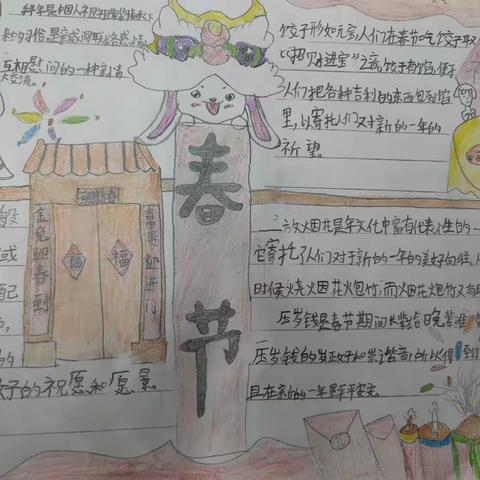 拜年是中国人
的习俗是亲戚间联络感情
互相慰问的一种亲情
大交流。
饺子形如元宝,人们在春节吃饺子取
“招财进宝”之音,饺子有馅,便于
人们把各种吉利的东西包到馅
里,以寄托人们对于新的一年的
祈望。
春节
金兔迎春到
富贵迎进门
福
福
般
或
配
的
好的祝愿和愿景
放烟花是年文化中富有代表性的一
它寄托了人们对于新的一年的美好向往
时候烧火烟花火炮竹,而烟花炮竹又有
压岁钱是春节期间长辈给晚辈准
压岁钱的
且在新的一年里平平安安